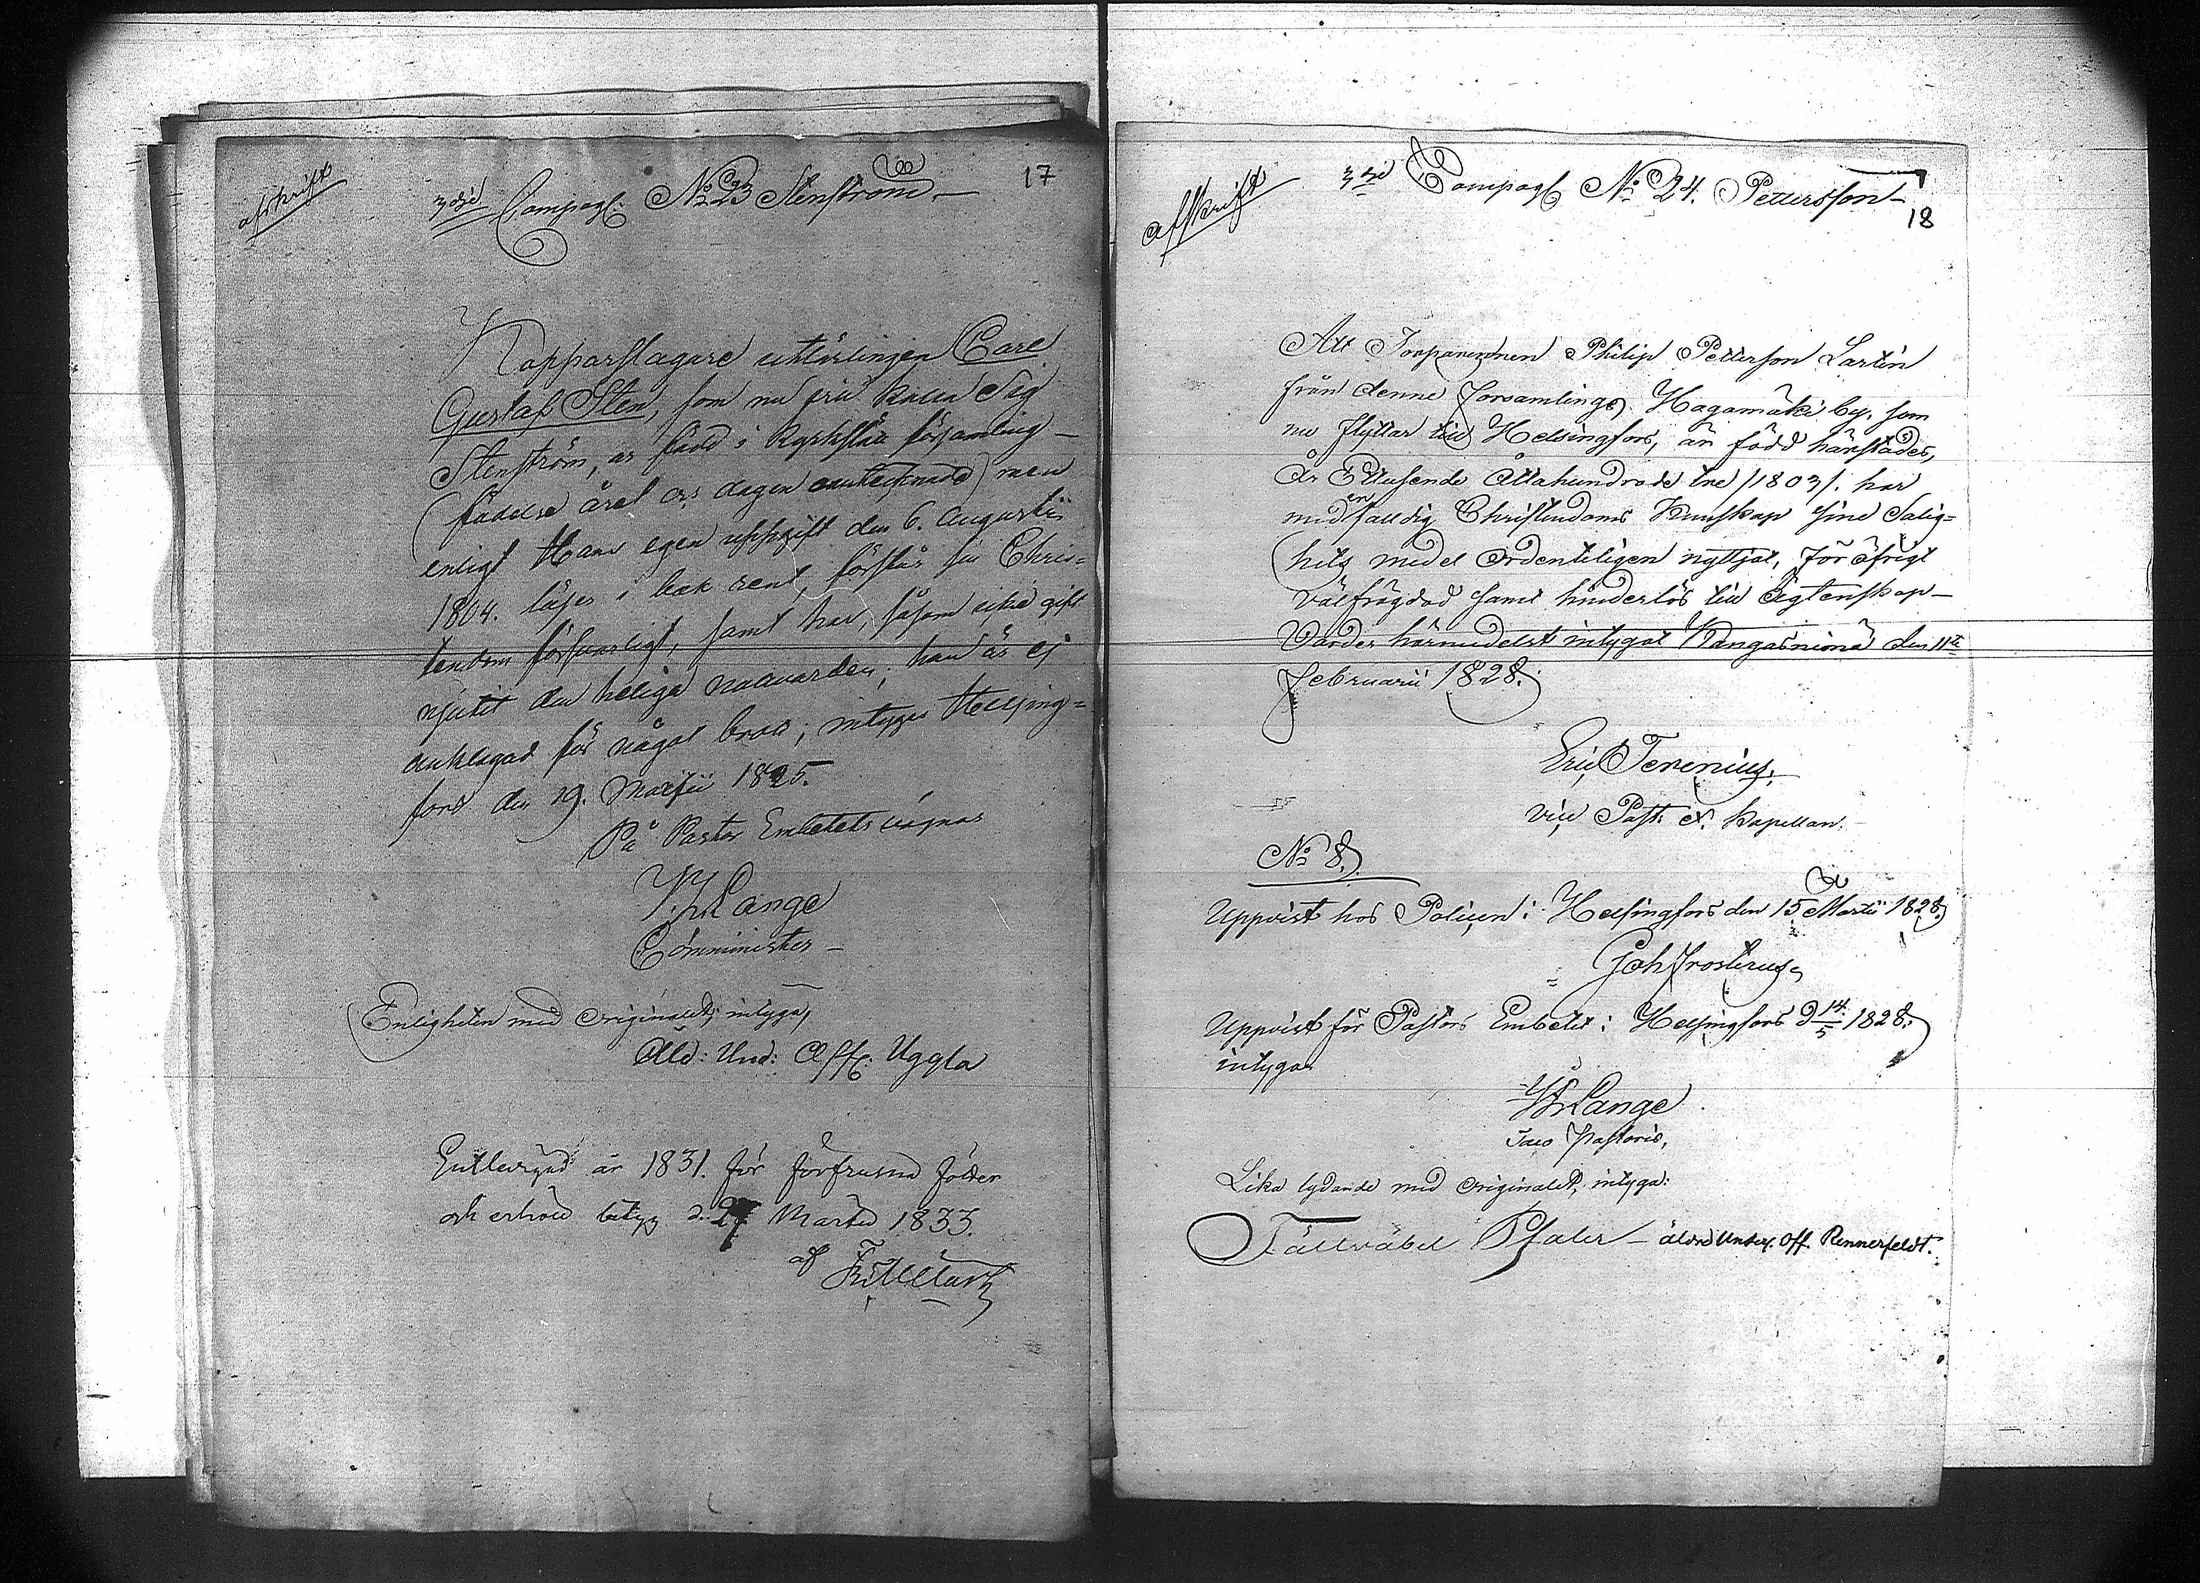 afskrift
3dje Compagl: No 23 Stenström.
17
Kopparslagare utlärlingen Carl
Gustaf Sten, som nu frid kalla Sig
Stenström, är född i Kyrkslätt församling
(födelse året och dagen antecknade) men
enligt Hans egen uppgift den 6. Augustii
1804. läser i bok rent, förstår sin Chris=
tendom försvarligt, samt har, såsom icke gift
njutit den heliga nattvarden; han är ej
anklagad för något brott; intygas Helsing=
fors den 19. Martii 1825.
På Pastors Embetets vägnar
Lange
Comminister
Enligheten med originalet, intyga,
Äld: Und: Off: Uggla
Entledigad år 1831. för förfrusna fötter
och erhöll betyg d. 27 Martii 1833.
af
afskrift
3dje Compagl No 24. Pettersson
18
Att Torparesonen Philip Petterson Lartin
från denne församlings Hagamäki by, som
nu flyttar till Helsingfors, är född härstädes,
År Ettusende Åttahundrade tre /1803/. har
med enfaldig Christendoms Kunskap sine Salig=
hets medel Ordenteligen nyttjat, för öfrigt
välfrägdad samt hinderlös till Ägtenskap
Varder härmedelst intygat Kangasniemi den 11te
Februarii 1828.
Eric Terenius,
vice Past: et. Kapellan.
No 8.
Uppvist hos Policen i Helsingfors den 15 Martii 1828.
Joh Frosterus
Uppvist för Pastors Embetet i Helsingfors d 14/5 1828.
intygar
Lange
Vice Pastoris,
Lika lydande med originalet, intyga:
Fältväbel Pfaler – äldre Under. Off. Rennerfeldt.